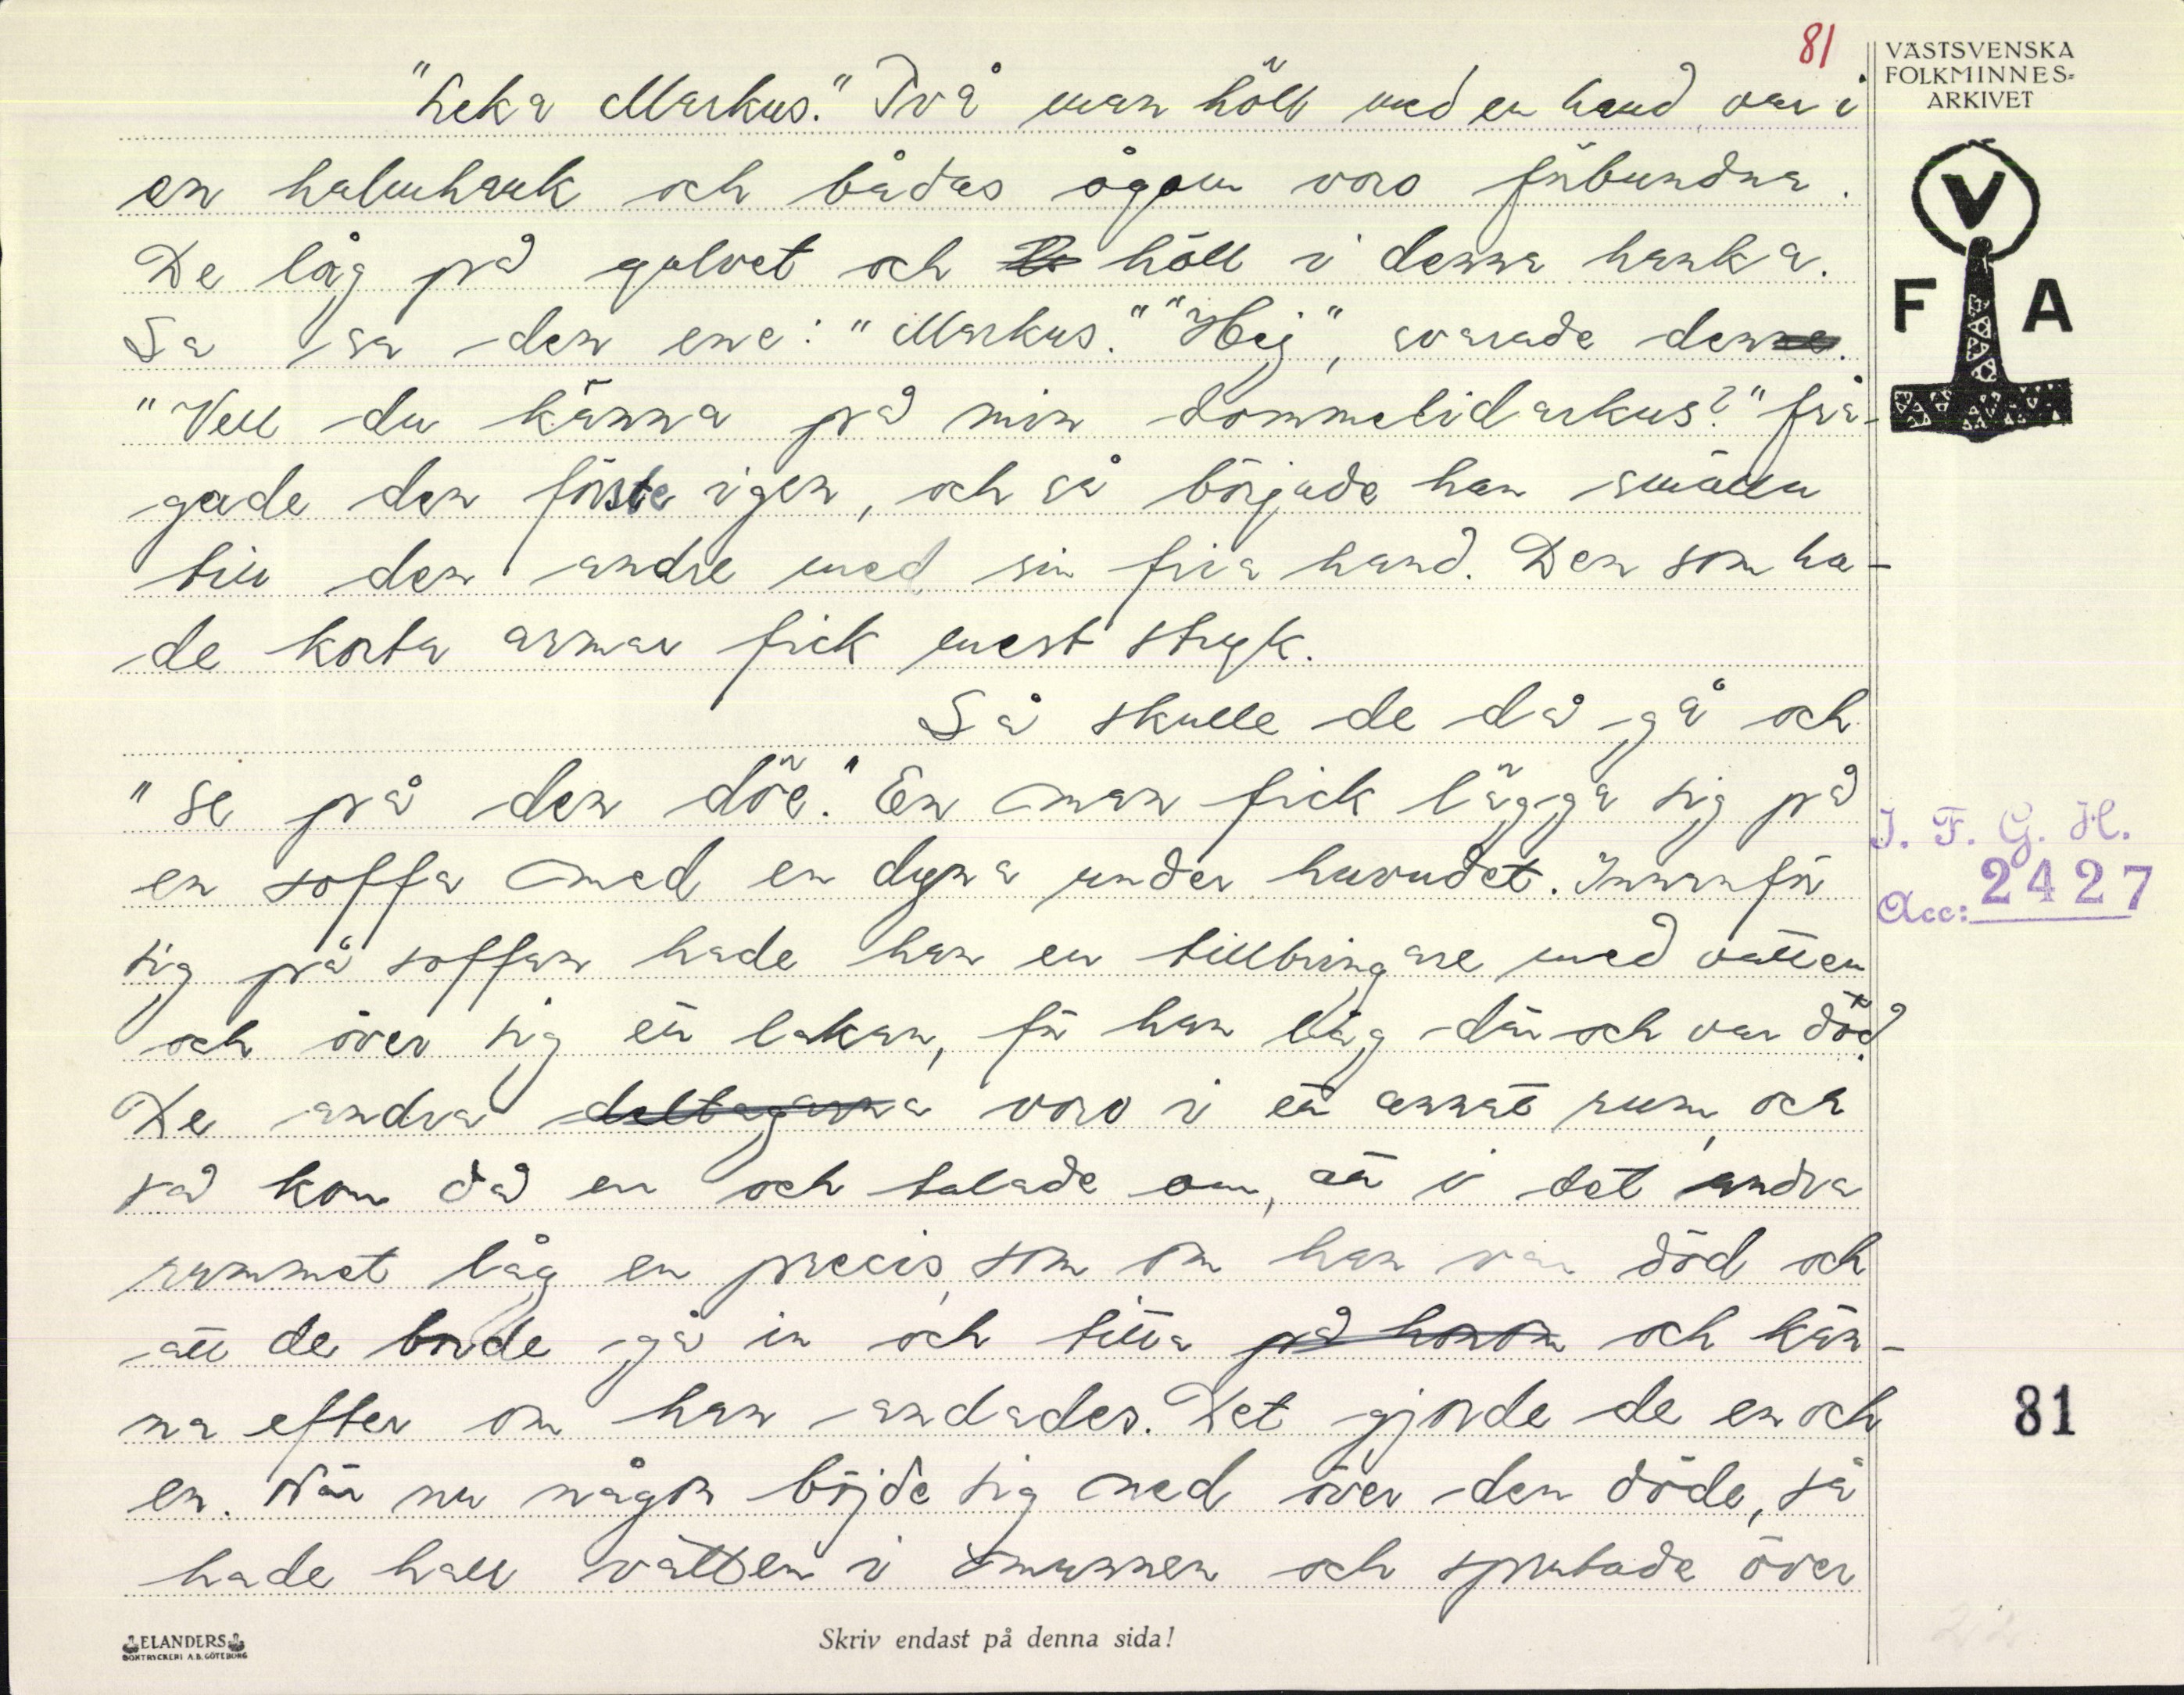 81
VÄSTSVENSKA
FOLKMINNES-
ARKIVET
"Leka Markus." Två man höll med en hand var i
en halmhank och bådas ögon voro förbundna.
De låg på golvet och höll i denna hanka.
Sa sa den ene: "Markus." "Hej", svarade denne.
"Vell du känna på min dommelidarkus?" frå-
gade den förste igen, och så började han smälla
till den andre med sin fria hand. Den som ha-
de korta armar fick mest stryk.
Så skulle de då gå och
"se på den döe." En man fick lägga sig på
en soffa med en dyna under huvudet. Innanför
sig på soffan hade han en tillbringare med vatten
och över sig ett lakan, för han låg där och var död.
De andra deltagarna voro i ett annat rum, och
så kom då en och talade om, att i det andra
rummet låg en precis som om han var död och
att de borde gå in och titta på honom och kän-
na efter om han andades. Det gjorde de en och
en. När nu någon böjde sig ned över den döde, så
hade han vatten i munnen och sprutade över
V
F A
I. F. G. H.
Acc: 2427
81
ELANDERS
BOKTRYCKERI A.B. GÖTEBORG
Skriv endast på denna sida!